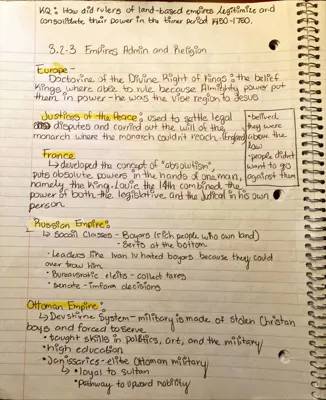 KQ: How did rulers of land-based empires legitimize and
consolidate their power in the timer period 1450-1750.
3.2-3 Empires Admin and Religion
Europe -
Doctorine of the Divine Right of Kings: the belief
Kings where able to rule because Almighty power put
them in power - he was the vise region to Jesus
Justices of the Peace: used to settle legal
disputes and carried out the will of the
monarch where the monarch couldn't reach. (England)
• belived
they were
above the
law
• people didn't
want to go
against them
France
↳ developed the concept of "absolutism",
puts absolute powers in the hands of one man,
namely, the King. Louie the 14th combined the
power of both the legislative and the Judical in his own
person
Russian Empire:
↳ Social Classes - Boyers (rich people who own land)
- Serfs at the bottom
• Leaders like Ivan IV hated boyers because they could
over trow him
• Bureausratic eleits - collect taxes
• senate - inform decisions
Ottoman Empire:
↳ Devshirme System - military is made of stolen Christan
boys and forced to serve
• taught skills in politics, art, and the military
• high education
• Janissaries - elite Ottoman military
↳ • loyal to sultan
• Pathway to upward mobility